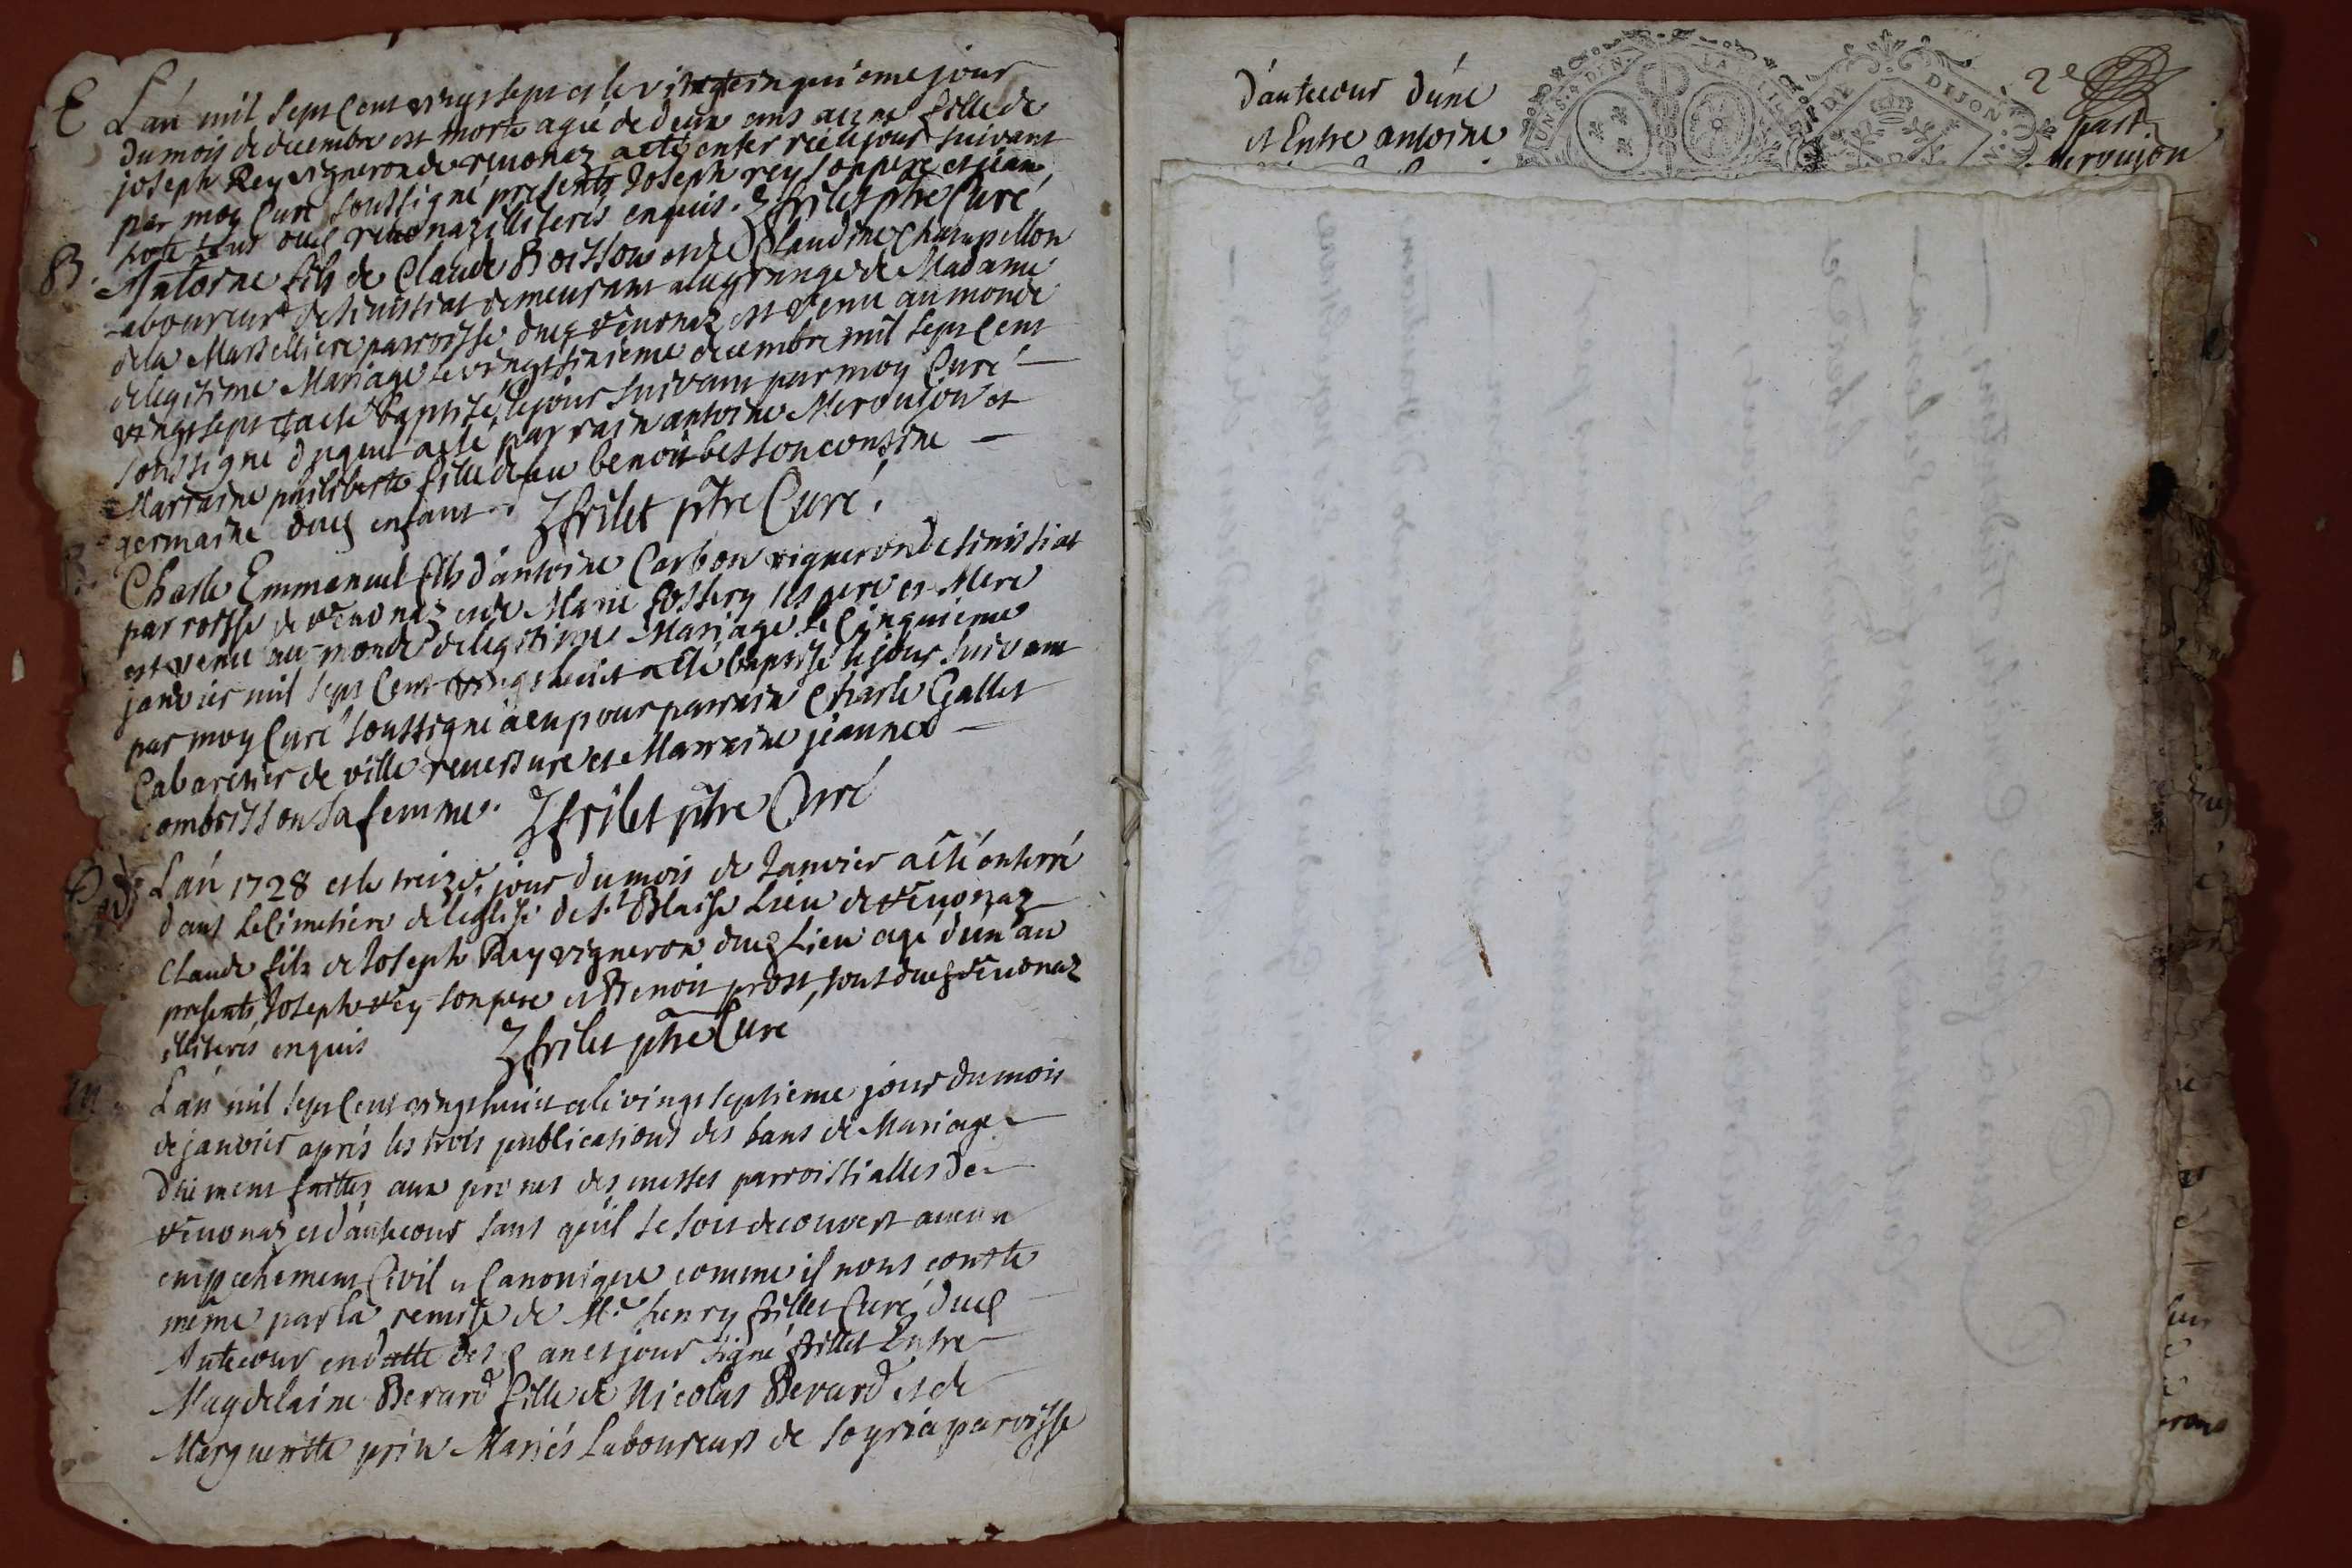 E
L'an mil sept cent vingt sept et le vingtcinquieme jour
du mois de decembre est morte agée de deux ans fille de
joseph Rey vigneron de revonaz a eté enterrée le jour suivant
par moy Curé soussigné presents Joseph rey son pere et jean
tous dud revonaz illiterés enquis. frilet ptre Curé
B.
Antoine fils de Claude Boisson et de Claudine Champellon
laboureur de sinissiat demeurant a la grange de Madame
de la Marselliere parroisse dud revonaz est venu au monde
de legitime Mariage le vingtsixieme decembre mil sept cent
vingt sept et a eté baptisé le jour suivant par moy Curé
soussigné parrain antoine Meroujon et
Marraine philiberte fille de feu benoit besson cousine
germaine dud enfant frilet ptre Curé.
B.
Charle Emmanuel fils d'antoine Carbon vigneron de sinissiat
parroisse de revonaz et de Marie fossery ses pere et Mere
est venu au monde de legitime Mariage le cinquieme
janvier mil sept cent vingt huit a eté baptisé le jour suivant
par moy Curé soussigné a eu pour parrain Charle Gallet
Cabaretier de ville reversure et Marraine jeanne
combrisson sa femme. frilet ptre Curé
L'an 1728 et le treize jour du mois de Janvier a eté enterré
dans le Cimetiere de leglise de st Blaise Lieu de revonaz
Claude fils de Joseph Rey vigneron dud Lieu agé d'un an
presents Joseph rey son pere et Benoit prost, tous dud revonaz
illiteres enquis frilet ptre Curé
M
L'an mil sept cent vingt huit et le vingt septieme jour du mois
de janvier aprés les trois publications des bans de Mariage
duement faittes aux prones des messes parroissialles de
revonaz et d'antecour sans quil se soit decouvert aucun
empechement Civil et Canonique comme il nous conste
même par la remise de Mr henry frillet Curé dud
Antecour en datte des d an et jour signé frillet Entre
Magdelaine Berard fille de Nicolas Berard et de
Marguerite prin Mariés Laboureurs de soyria paroisse
d'antecour d'une
et Entre antoine
2e
part
meroujon
DE DIJON